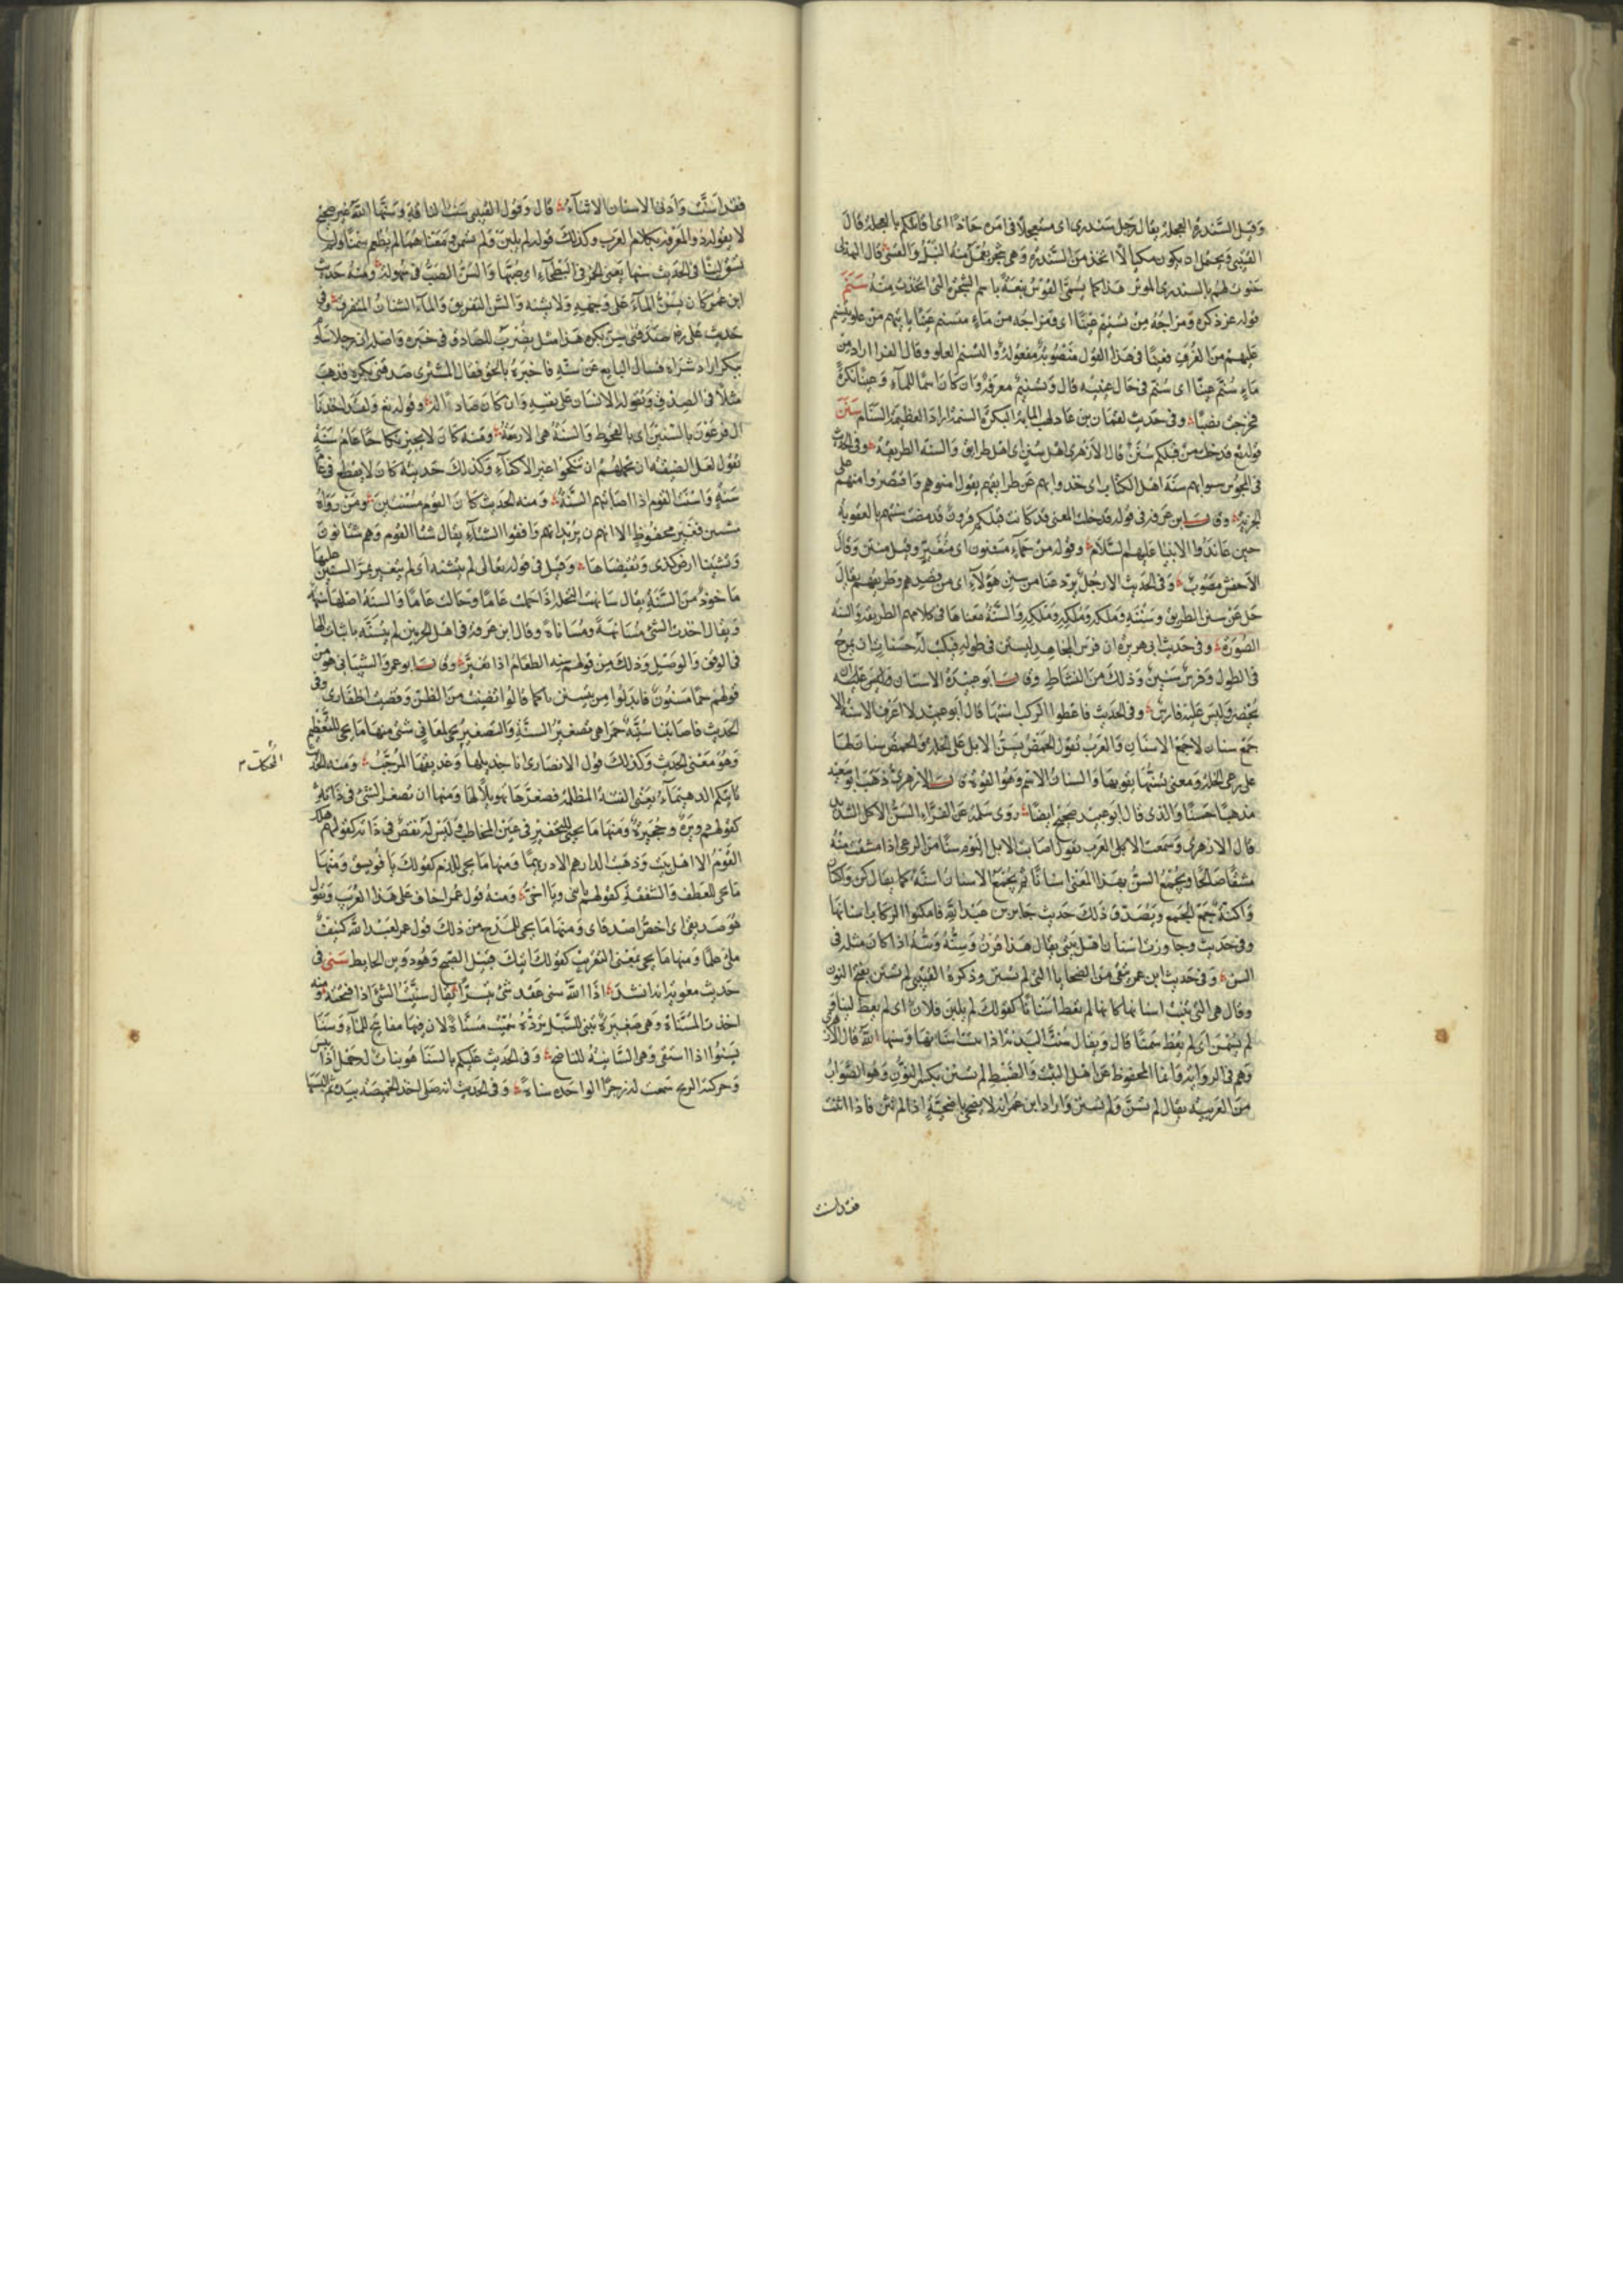 وقيل السندرة العجلة يقال رجل سندري اى مستعجلا فى امره حادا اى اقاتلكم بالعجلة قال
القتيبى ويحتمل ان يكون مكيالا اتخذ من السندرة وهى شجر يعمل منه النبل والقسى قال الهذلى
حنوت لهم بالسندرى الموتر هذا كما يسمى القوس نبعة باسم الشجرة التى اتخذت منه سنم
قوله عز ذكره ومزاجه من تسنيم عينا اى ومزاجه من ماء متسنم عينا ياتيهم من علو يتسنم
عليهم من الغرف فعينا فى هذا القول منصوبة مفعولة والتسنم العلو وقال الفرا اراد من
ماء سنم عينا اى سنم فى حال عينيه قال وتسنيم معرفة وان كان اسما للماء وعينا نكرة
فخرجت نصبا وفى حديث لقمان بن عاد يهب المائة البكرة السنمة اراد العظيمة السنام سنن
قوله تع قد خلت من قبلكم سنن قال الازهرى اهل سنن اى اهل طرايق والسنة الطريقة وفى الحديث
فى المجوس سنوا بهم سنة اهل الكتاب اى خذوا بهم على طرايقهم يقول امنوهم واقتصروا منهم على
الجزية وقال ابن عرفة فى قوله قد خلت المعنى قد كانت قبلكم قرون قد مضت سنتهم بالعقوبة
حين عاندوا الانبيا عليهم السلام وقوله من حماء مسنون اى متغير وقيل منتن وقال
الاخفش مصبوب وفى الحديث الا رجل يرد عنا من سنن هؤلاء اى من قصدهم وطريقهم يقال
خل عن سنن الطريق وسننه وملكه وملكه وملكه والسنة معناها فى كلامهم الطريقة والسنة
الصورة وفى حديث ابى هريرة ان فرس المجاهد ليستن فى طوله فيكتب له حسنات اى يمرح
فى الطول وفرس سنين وذلك من النشاط وقال ابو عبيدة الاستنان
يحضر وليس عليه فارس وفى الحديث فاعطوا الركب اسنتها قال ابو عبيد لا اعرف الاسنة الا
جمع سنان لا جمع الاسنان والعرب تقول الحمض يسن الابل على الخلة والحمض سنان لها
على رعى الخلة ومعنى يسنها يقويها والسنان الاسم وهو القوة قال الازهرى ذهب ابو سعيد
مذهبا حسنا والذى قال ابو عبيد صحيح ايضا روى سلمة عن الفراء السن الاكل الشديد
قال الازهرى وسمعت العرب تقول اصابت الابل اليوم سنا من الرعى اذا مشقت منه
مشقا صالحا ويجمع السن بهذا المعنى اسنانا ثم يجمع الاسنان اسنة كما يقال كن واكنان
واكنة جمع الجمع ويصدق ذلك حديث جابر بن عبد الله فامكنوا الركاب اسنانها
وفى حديث وجاوزت اسنان اهل بيتى يقال هذا قرن وسنه وتنه اذا كان مثله فى
السن وفى حديث ابن عمر ينفى من الضحايا التى لم تسنن وذكره القتيبى لم تسنن بفتح النون
وقال هى التى تنبت اسنانها كانها لم يعط اسنانا كقولك لم يلبن فلان اى لم يعط لبنا وفى
لم يسمن اى لم يعط سمنا قال ويقال سنت البدنة اذا نبتت اسنانها وسنها الله قال الازهرى
وهم فى الرواية وانما المحفوظ عن اهل الثبت والضبط لم تسنن بكسر النون وهو الصواب
من العربية يقال لم يسن ولم يسنن واراد ابن عمر انه لا يضحى باضحية اذا لم تثن فاذا اثنت
فقد اسنت
فقد اسنت وادنى الاسنان الاثناء قال وقول القتيبى سنت الناقة وسنها الله غير صحيح
لا يقوله ذو المعرفة بكلام العرب وكذلك قوله لم يلبن ولم يسمن ومعناهما لم يطعم سمنا ولم
يسق لبنا وفى الحديث سنها يعنى الخمر فى البطحاء اى صبها والسن الصب فى سهولة ومنه حديث
ابن عمر كان يسن الماء على وجهه ولا يشنه والشن التفريق والماء الشنان المتفرق وفى
حديث على رضه صدقنى سن بكره هذا مثل يضرب للصادق فى خبره واصله ان رجلا ساوم
ببكر اراد شراءه فسال البايع عن سنه فاخبره بالحق فقال المشترى صدقنى بكره فذهب
مثلا فى الصدق ويقوله الانسان على نفسه وان كان ضارا له وقوله تع ولقد اخذنا
ال فرعون بالسنين اى بالقحوط والسنة هى الازمة ومنه كان لا يجيز نكاحا عام سنة
يقول لعل الضيقة ان تحملهم ان ينكحوا غير الاكفاء وكذلك حديثه كان لا يقطع فى عام
سنة واسنت القوم اذا اصابتهم السنة ومنه الحديث كان القوم مسنتين ومن رواه
مشتين فغير محفوظ الا انهم يريدانهم وافقوا الشتاء يقال شتا القوم وهم شاتون
وقيل فى قوله تعالى لم يتسنه اى لم يتغير بمر السنين عليها
ماخوذ من السنة يقال سانهت النخلة اذا حملت عاما وحالت عاما والسنة اصلها سنهة
ويقال اخذت الشئ مسانهة ومساناة وقال ابن عرفة فى اهل الحرمين لم يتسنه باثبات الها
فى الوقف والوصل وذلك من قولهم سنه الطعام اذا تغير وقال ابو عمرو الشيبانى هو من
قولهم حما مسنون فابدلوا من يتسنن ياكما قالوا تظنيت من الظن وقصيت اظفارى وفى
الحديث فاصابتنا سنية حمرا هى تصغير السنة والتصغير يجئ لمعانى شتى منها ما يجئ للتعظيم
وهو معنى الحديث وكذلك قول الانصارى انا جذيلها وعذيقها المرجب ومنه الحديث
اتتكم الدهيماء يعنى الفتنة المظلمة فصغرها تهويلا لها ومنها ان تصغر الشئ فى ذاته
كقولهم دويرة وحجيرة ومنها ما يجئ للتحقير فى عين المخاطب وليس له نقص فى ذاته كقولهم هلك
القوم الا اهل بيت وذهب الدارهم الا دريهما ومنها ما يجئ للذم كقولك يا فويسق ومنها
ما يجئ للعطف والشفقة كقولهم يا بنى ويا اخى ومنه قول عمر اخاف على هذا العريب ويقول
هو صديقى اى اخص اصدقاى ومنها ما يجئ للمدح من ذلك قول عمر لعبد الله كنيف
ملئ علما ومنها ما يجئ بمعنى التقريب كقولك اتيك قبيل الصبح وهو دوين الحايط سنى فى
حديث معوية انه انشد اذا الله سنى عقد شئ تيسرا يقال سنيت الشئ اذا فتحته ومنه
اخذت المسناة وهى ضفيرة تبنى للسيل يرده سميت مسناة لان فيها مفاتح للماء وسنا
يسنوا اذا استقى وهى السانية للناضح وفى الحديث عليكم بالسنا هو نبات له حمل اذا يبس
وحركته الريح سمعت له زجرا الواحدة سناءة وفى الحديث انه صلى اخذ الخميصة بيده ثم البسها